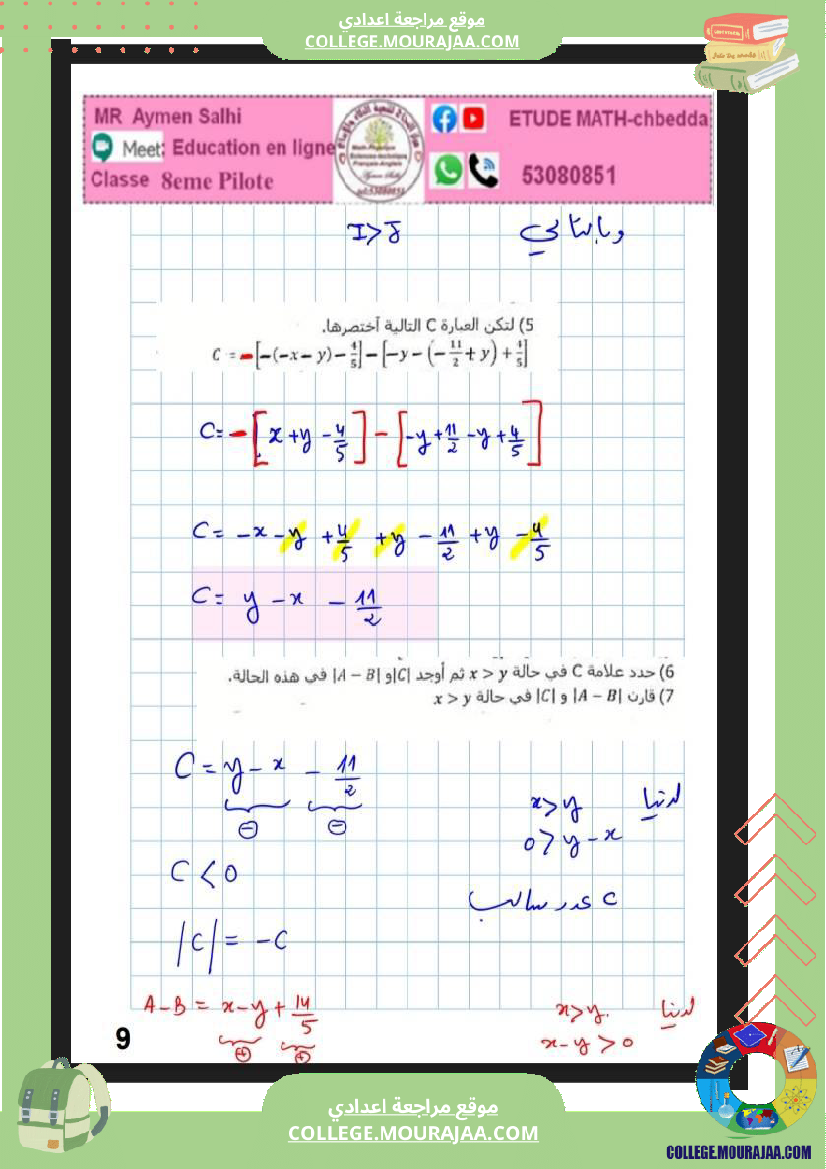 موقع مراجعة اعدادي
COLLEGE.MOURAJAA.COM
MR Aymen Salhi
Meet: Education en ligne
Classe 8eme Pilote
ETUDE MATH-chbedda
53080851
وبالتالي I>J
5) لتكن العبارة C التالية أختصرها.
C = -[-(-x - y) - 4/5] - [-y - (-11/2 + y) + 4/5]
C= -[x + y - 4/5] - [-y + 11/2 - y + 4/5]
C= -x - y + 4/5 + y - 11/2 + y - 4/5
C= y - x - 11/2
6) حدد علامة C في حالة x > y ثم أوجد |C| و |A − B| في هذه الحالة.
7) قارن |A − B| و |C| في حالة x > y
C = y - x - 11/2
⊖ ⊖
لدينا x>y
0>y-x
C < 0
C عدد سالب
|C| = -C
A-B = x-y+14/5
⊕ ⊕
لدينا x>y.
x-y>0
9
موقع مراجعة اعدادي
COLLEGE.MOURAJAA.COM
COLLEGE.MOURAJAA.COM